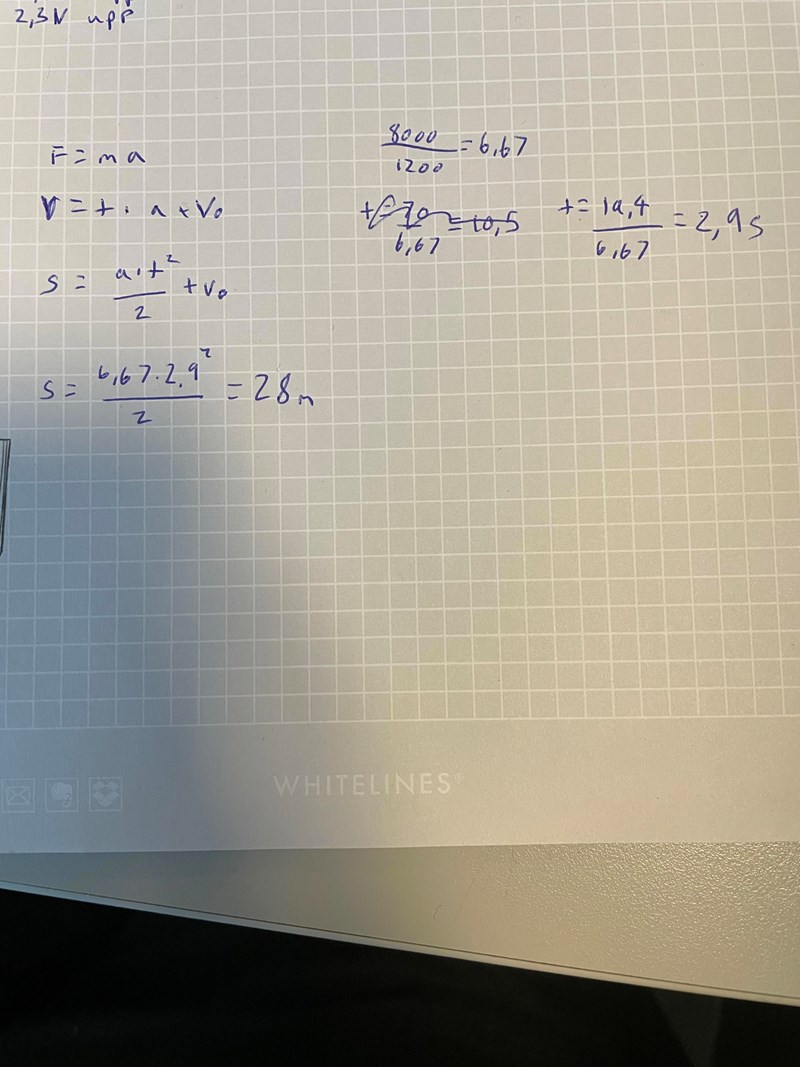 2,3N upp
F = ma
V = t · a + V₀
s = a·t²/2 + v₀
s = 6,67·2,9²/2 = 28m
8000/1200 = 6,67
t = 70/6,67 = 10,5
t = 19,4/6,67 = 2,9s
WHITELINES®